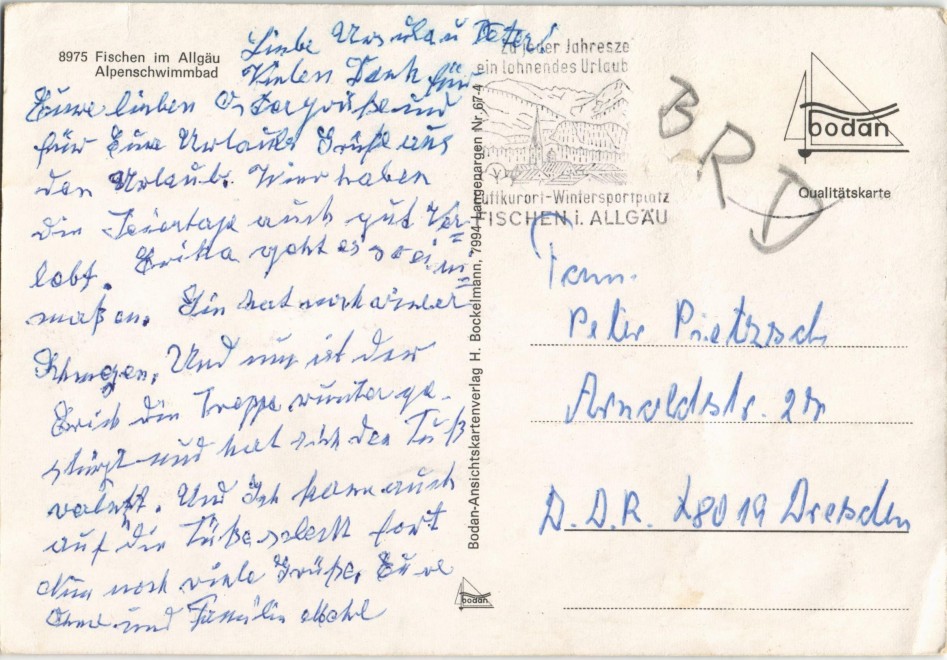 8975 Fischen im Allgäu
Alpenschwimmbad
Liebe Ursula u Peter!
Vielen Dank für
Eure lieben Ostergrüße und
für Eure Urlaubs Grüße aus
den Urlaub. Wier haben
die Feiertage auch gut Ver=
lebt. Erika geht es so einiger
maßen. Sie hat noch wieder
Und nun ist der
Erich die Treppe runter ge-
stürzt und hat sich den Fuß
verletzt. Und Ich kann auch
auf die Füße schlecht fort
Nun noch viele Grüße. Eure
Oma und Familie
Zu jeder Jahresze
ein lohnendes Urlaub
Luftkurort-Wintersportplatz
FISCHEN i. ALLGÄU
BRD
bodan
Qualitätskarte
Bodan-Ansichtskartenverlag H. Bockelmann, 7994 Langenargen Nr. 67-4
Fam.
Peter Pietzsch
Arnoldstr.
D.D.R. X8019 Dresden
bodan